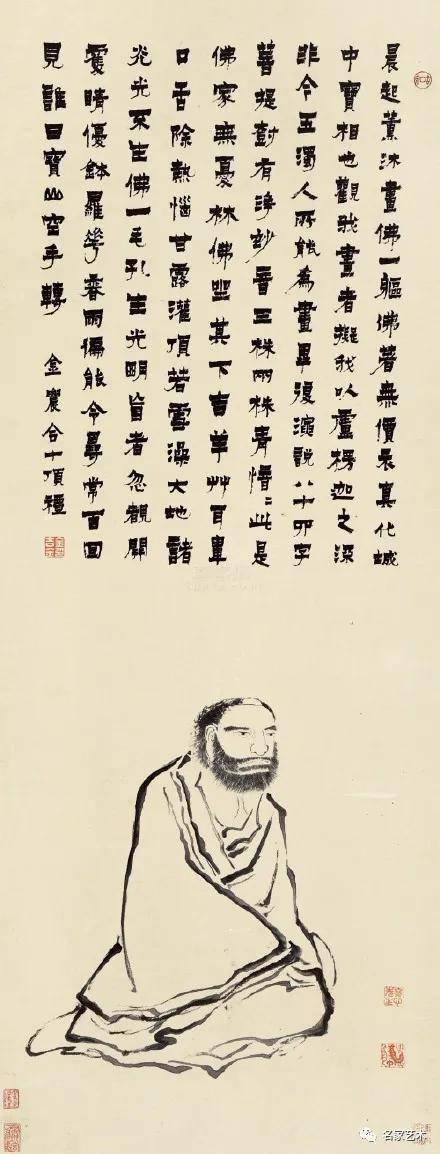 晨起薰沐畫佛一軀佛著無價衣真化城
中寶相也觀我畫者擬我以盧楞迦之深
非今五濁人所能為畫畢復演說八十四字
菩提樹有淨妙音三株兩株青愔〻此是
佛家無憂林佛坐其下吉羊艸耳畢
口舌除熱惱甘露灌頂若雪澡大地諸
光不生佛一毛孔生光明盲者忽覩開
晴優鉢羅花香雨徧能令尋常百回
見誰曰寶山空手轉 金農合十頂禮
名家艺术